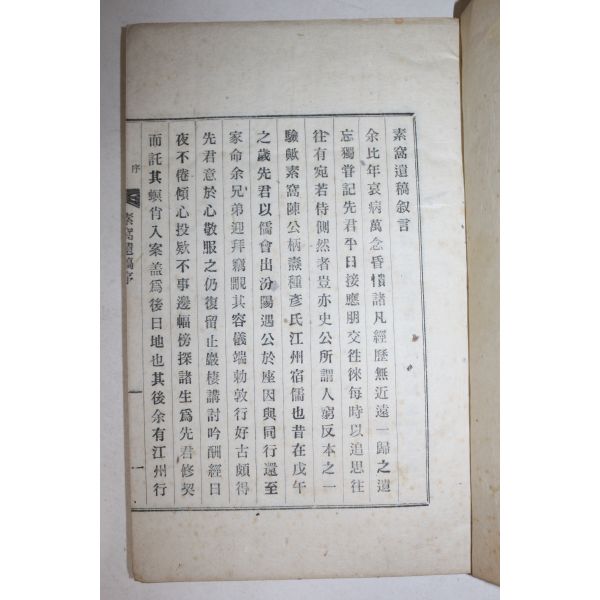 素窩遺稿叙言
余比年哀病萬念昏憒諸凡經歷無近遠一歸之遺
忘獨甞記先君平日接應朋交徃徠每時以追思往
徃有宛若侍側然者豈亦史公所謂人窮反本之一
驗歟素窩陳公柄燾種彥氏江州宿儒也昔在戊午
之歲先君以儒會出汾陽遇公於座因與同行還至
家命余兄弟迎拜竊覸其容儀端勅敦行好古頗得
先君意於心敬服之仍復留止嚴棲講討吟酬經日
夜不倦傾心投欵不事邊幅傍探諸生爲先君修契
而託其螟肯入案盖爲後日地也其後余有江州行
序
素窩遺稿序
一